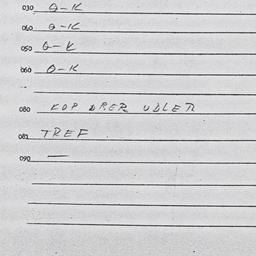 030 O-K
040 O-K
050 O-K
060 O-K
080 KOP DRER UDLER
081 TREF
090 —